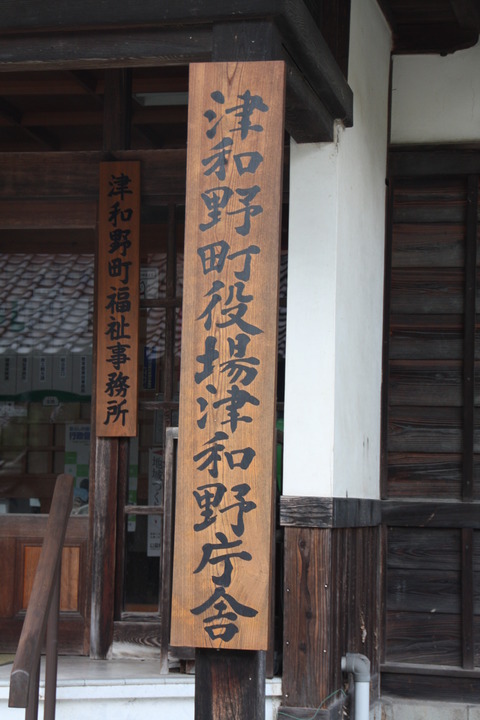 津和野町役場津和野庁舎
津和野町福祉事務所